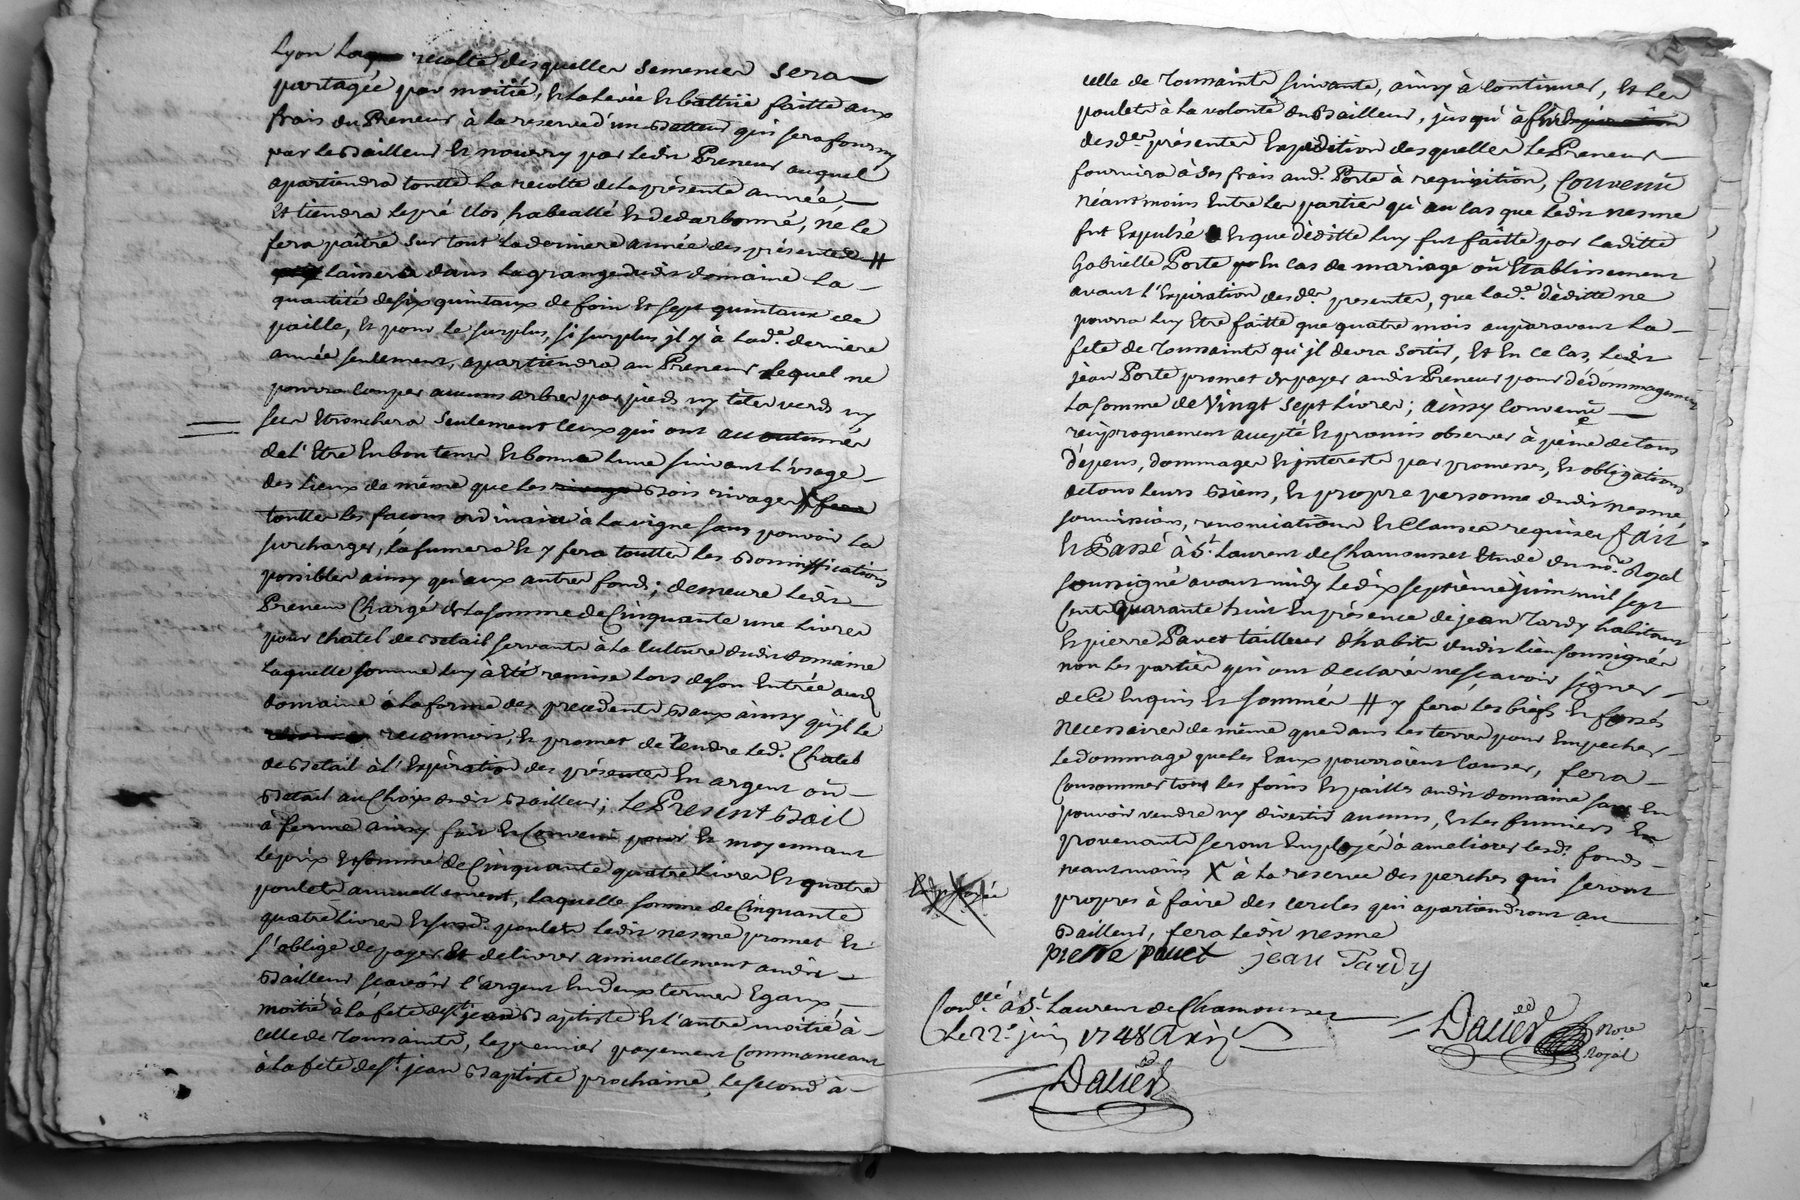 Lyon La recolte desquelles semences sera
partagée par moitié, et la levée et battüe faitte aux
frais du Preneur à la reserve d'un Batteur qui sera fourny
par le Bailleur et nourry par ledit Preneur auquel
apartiendra toutte la recolte de la présente année
et tiendra le pré clos, et ne le
fera paître sur tout la derniere année des présentes #
laissera dans la grange dudit domaine la
quantité de six quintaux de foin et sept quintaux de
paille, et pour le surplus, si surplus jl y à lad.e derniere
année seulement, apartiendra au Preneur Lequel ne
pourra couper aucuns arbres par pied ny têtes verds ny
secs Etronchera seulement ceux qui ont accoutumés
de l'Etre En bon tems et bonne lune suivant l'usage
des lieux de même que les Bois rivages X
touttes les façons ordinaires à la vigne sans pouvoir la
surcharger, la fumera et y fera touttes les Bonniffications
possibles ainsy qu'aux autres fonds; demeure ledit
Preneur Chargé de la somme de Cinquante une livres
pour chatel de Betail servants à la Culture dudit domaine
Laquelle somme luy à été remise lors de son Entrée aud.
domaine à la forme des precedents Baux àinsy qu'jl le
reconnoit, et promet de rendre led. Chatel
de Betail à l'Expiration des présentes En argent oü
Betail au Choix dudit Bailleur; Le Present Bail
à ferme ainsy fait et Convenü pour et moyennant
le prix et somme de Cinquante quatre livres et quatre
poulets annuellement, laquelle somme de Cinquante
quatre livres et susd. poulets ledit nesme promet et
s'oblige de payer et delivrer annuellement audit
Bailleur sçavoir l'argent En deux termes Egaux
moitié à la fete de st jean Baptiste et l'autre moitié à
celle de Toussaints, le premier payement Commanceant
à la fete de st. jean Baptiste prochaine, le second à
celle de Toussaints suivante, ainsy à Continuer, et les
poulets à la volonté du Bailleur, jusqu'à fin
desd.es présentes Expedition desquelles le Preneur
fournira à ses frais aud. Porte à requisition, Convenü
néantmoins Entre les parties qu'au cas que ledit nesme
fut Expulsé et que déditte luy fut faitte par laditte
Gabrielle Porte En cas de mariage oü Etablissement
avant l'Expiration desd.es presentes, que lad.e déditte ne
pourra luy Etre faitte que quatre mois auparavant la
fete de Toussaints qu'jl devra sortir, et En ce cas, ledit
jean Porte promet de payer audit Preneur pour dédommagement
La somme de Vingt sept livres; àinsy Convenü
reciproquement accepté et promis observer à peine de tous
dépens, dommages et jnterests par promesses, et obligations
de tous leurs Biens, et propre personne dudit nesme
soumissions, renonciations et Clauses requises fait
et Passé à St. Laurent de Chamousset Etude du no.re Royal
soussigné avant midy le dix septième juin mil sept
Cents Quarante huit En présence de jean Tardy habitant
et pierre Pavet tailleur d'habits dudit lieu soussignés
non les parties qui ont declarés ne sçavoir signer
de Ce Enquis et sommés # y fera les biefs et fossés
Necessaires de même que dans les terres pour Empecher
le dommage que les Eaux pourroient Causer, fera
Consommer tous les foins et pailles audit domaine sans En
pouvoir vendre ny divertir aucuns, et les fumiers En
provenants seront Employés à ameliorer lesd. fonds
neantmoins X à la reserve des perches qui seront
propres à faire des cercles qui apartiendront au
Bailleur, fera ledit nesme
pierre pavet jean Tardy
Con.llé à St. Laurent de Chamousset
Le 22.e juin 1748
Dacier Nore
Royal
Dacier